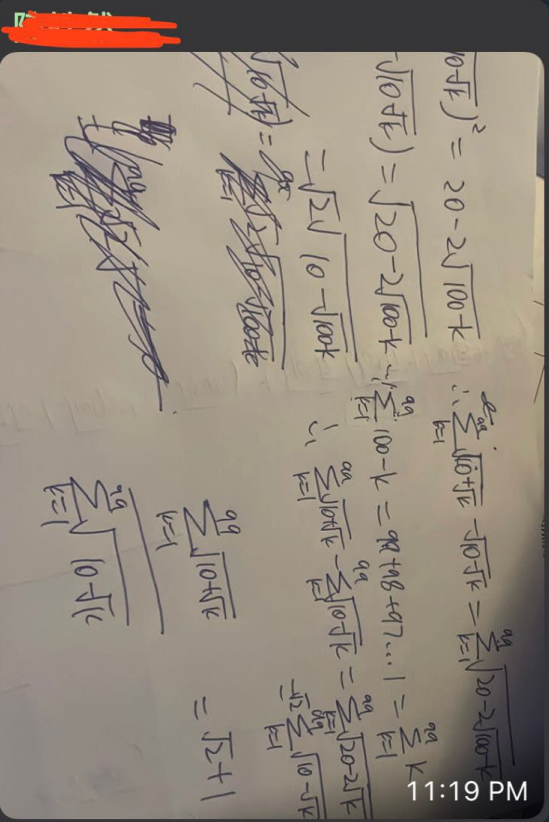 √10-√k)² = 20-2√100-k
-√10-√k) = √20-2√100-k
= √2√10-√100-k
∴ ∑_{k=1}^{99} √10+√k - √10-√k = ∑_{k=1}^{99} √20-2√100-k
∵ ∑_{k=1}^{99} 100-k = 99+98+97...1 = ∑_{k=1}^{99} k
∴ ∑_{k=1}^{99} √10+√k - ∑_{k=1}^{99} √10-√k = ∑_{k=1}^{99} √20-2√k
= √2 ∑_{k=1}^{99} √10-√k
∑_{k=1}^{99} √10+√k
∑_{k=1}^{99} √10-√k
= √2+1
11:19 PM